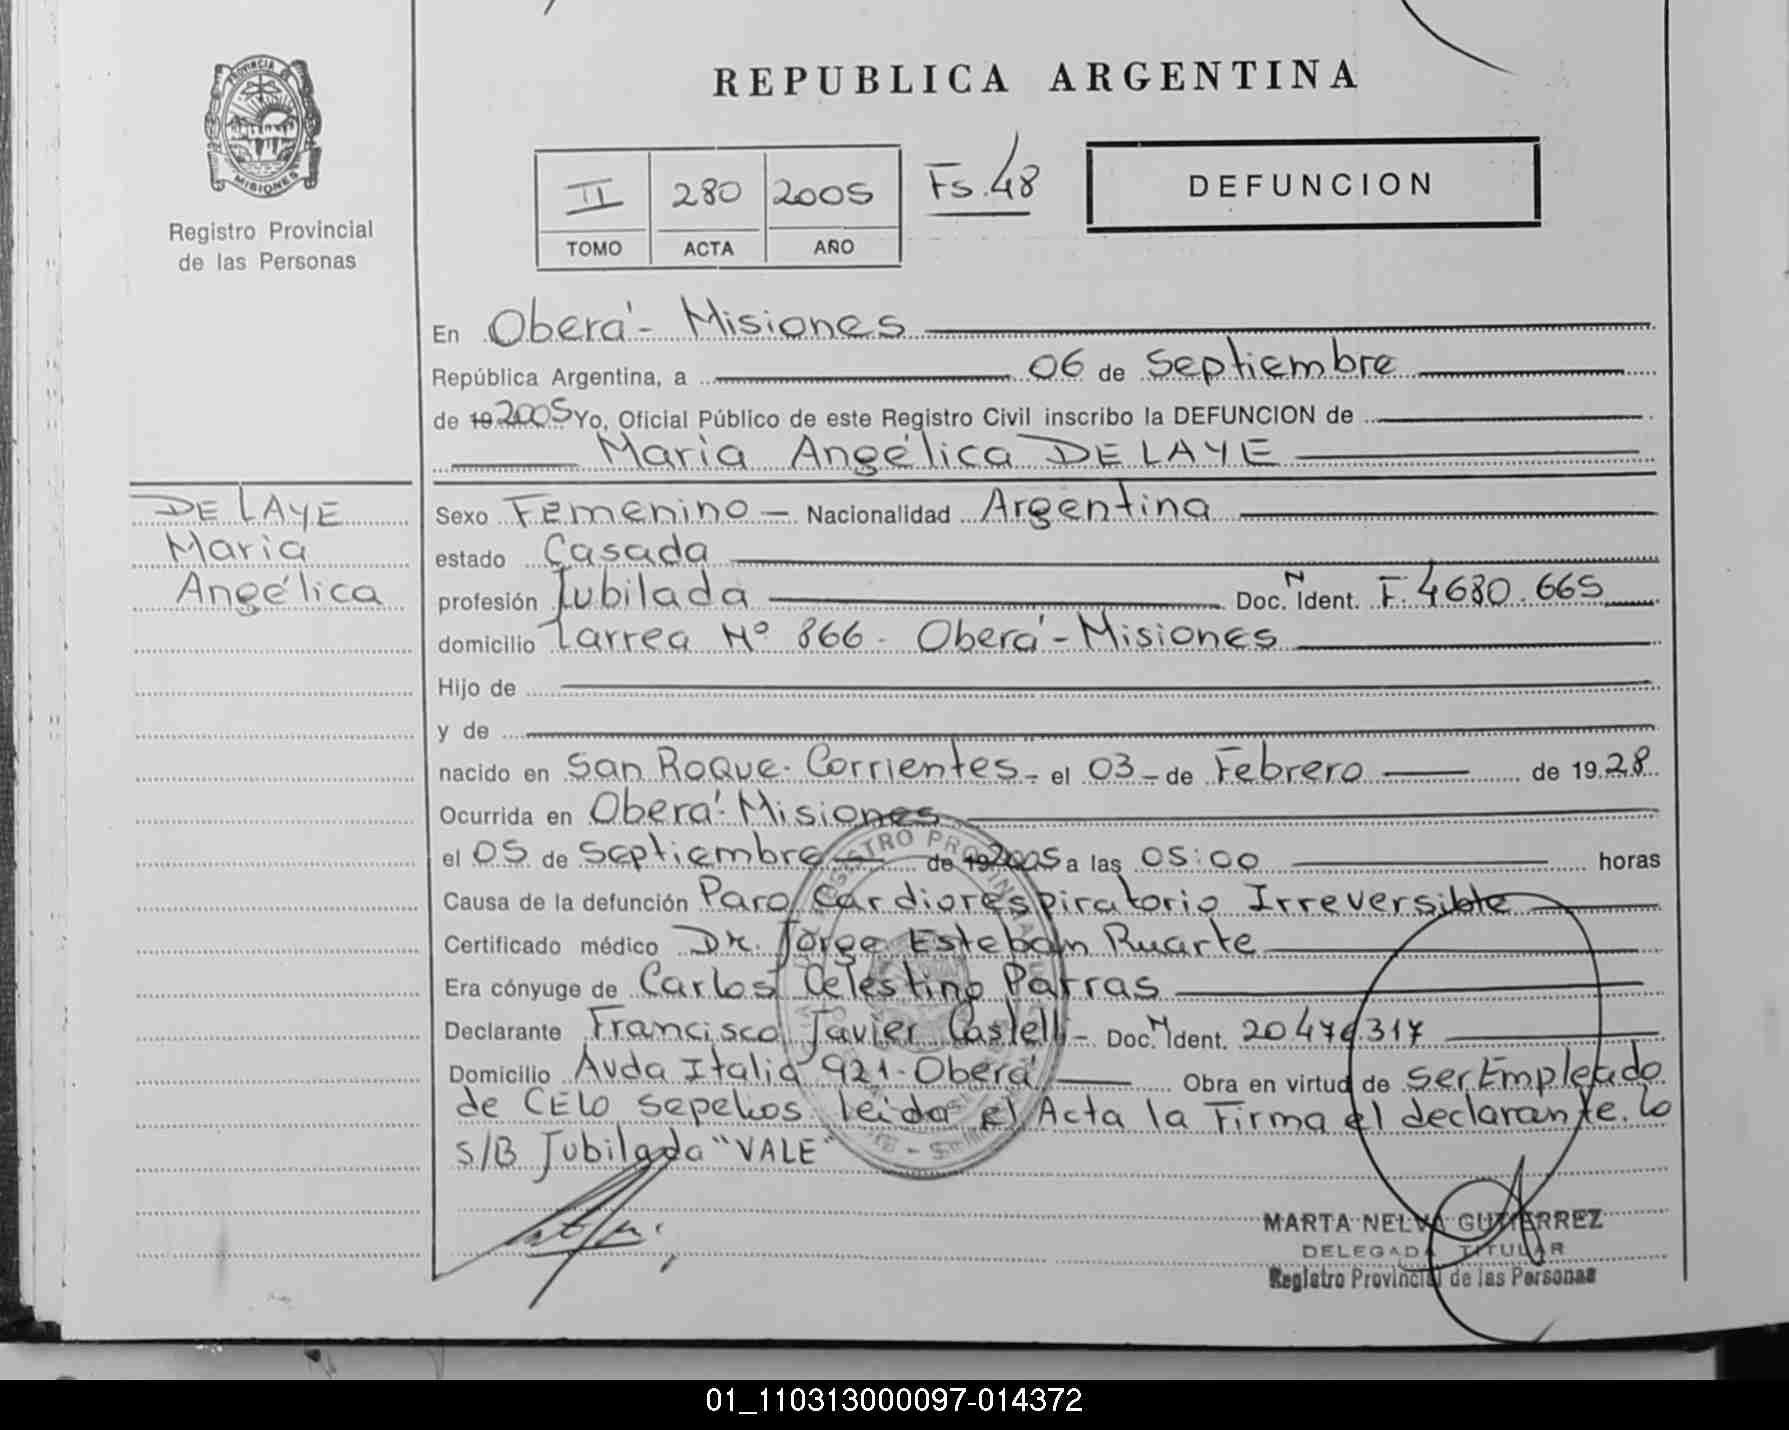 PROVINCIA
MISIONES
Registro Provincial
de las Personas
REPUBLICA ARGENTINA
II 280 2005 Fs. 48
TOMO ACTA AÑO
DEFUNCION
En Oberá - Misiones
República Argentina, a 06 de Septiembre
de 19 2005 Yo, Oficial Público de este Registro Civil inscribo la DEFUNCION de
Maria Angélica DE LAYE
DE LAYE
Maria
Angélica
Sexo Femenino - Nacionalidad Argentina
estado Casada
profesión Jubilada Doc. N Ident. F. 4680.665
domicilio Larrea Nº 866 - Oberá - Misiones
Hijo de
y de
nacido en San Roque - Corrientes - el 03 - de Febrero de 1928
Ocurrida en Oberá - Misiones
el 05 de Septiembre de 19 2005 a las 05:00 horas
Causa de la defunción Paro Cardiorespiratorio Irreversible
Certificado médico Dr. Jorge Esteban Ruarte
Era cónyuge de Carlos Celestino Parras
Declarante Francisco Javier Castelli - Doc. N Ident. 20476317
Domicilio Avda Italia 921 - Oberá Obra en virtud de ser Empleado
de CELO sepelios leida el Acta la Firma el declarante. Lo
S/B Jubilada "VALE"
MARTA NELVA GUTIERREZ
DELEGADA TITULAR
Registro Provincial de las Personas
01_110313000097-014372